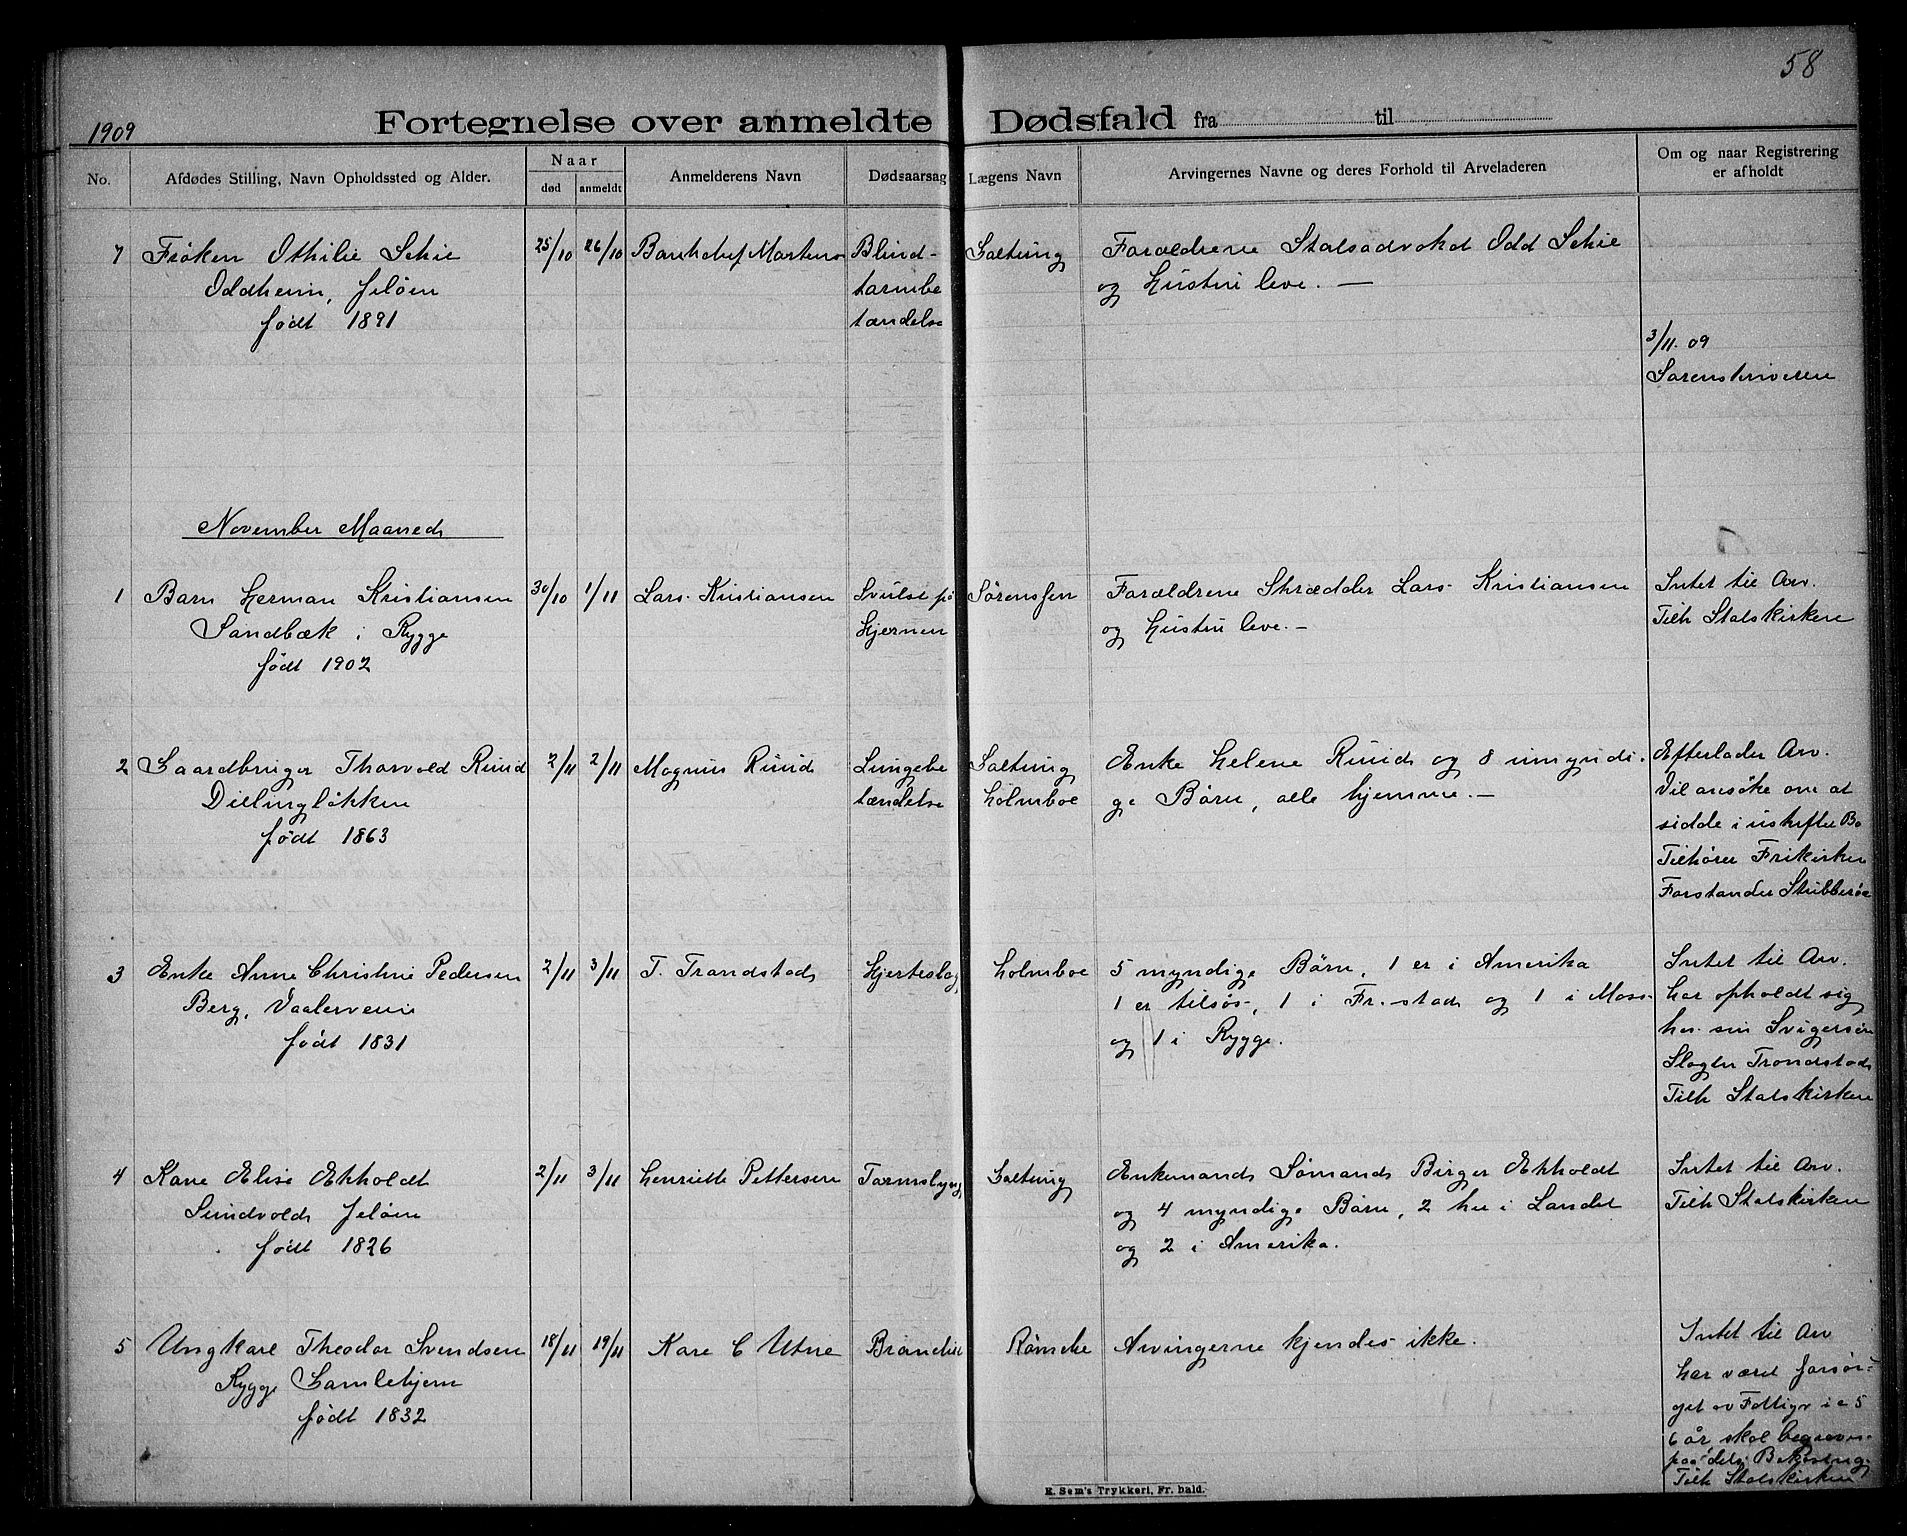 58
1909
Fortegnelse over anmeldte Dødsfald fra til
No.
Afdødes Stilling, Navn Opholdssted og Alder.
Naar
død
anmeldt
Anmelderens Navn
Dødsaarsag
Lægens Navn
Arvingernes Navne og deres Forhold til Arveladeren
Om og naar Registrering
er afholdt
7
Frøken Othilie Schie
Oddheim, Jeløen
født 1891
25/10
26/10
Bankchef Martens
Blind-
tarmbe
tændelse
Galtung
Forældrene Statsadvokat Odd Schie
og Hustru leve. —
3/11. 09
Sorenskriveren
November Maaned
1
Barn Herman Kristiansen
Sandbæk i Rygge
født 1902
30/10
1/11
Lars Kristiansen
Svulst på
Hjernen
Sørenssen
Forældrene Skrædder Lars Kristiansen
og Hustru leve. -
Intet til Arv.
Tilh Statskirken
2
Gaardbruger Thorvald Ruud
Dillingløkken
født 1863
2/11
2/11
Magnus Ruud
Lungebe
tændelse
Galtung
Holmboe
Enke Helene Ruud og 8 umyndi-
ge Børn, alle hjemme. —
Efterlader Arv.
Vil ansøke om at
sidde i uskiftet Bo
Tilhører Frikirken
Forstander Stubberøe
3
Enke Anne Christine Pedersen
Berg, Vaalerveien
født 1831
2/11
3/11
T. Trandstad
Hjerteslag
Holmboe
5 myndige Børn, 1 er i Amerika
1 er tilsøs, 1 i Fr.stad og 1 i Moss
og 1 i Rygge.
Intet til Arv.
Har opholdt sig
hos sin Svigersøn
Slagter Trondstad
Tilh Statskirken
4
Kone Elise Ekholdt
Sundvold Jeløen
født 1826
2/11
3/11
Henriette Pettersen
Tarmslyng
Galtung
Enkemand Sømand Birger Ekholdt
og 4 myndige Børn, 2 her i Landet
og 2 i Amerika.
Intet til Arv.
Tilh Statskirken
5
Ungkarl Theodor Svendsen
Rygge Gamlehjem
født 1832
18/11
19/11
Kare C Utne
Rømcke
Arvingerne kjendes ikke.
Intet til Arv
Har været forsør-
get av Fattigv i ca 5
6 år skal begraves
paa dets Bekostning
Tilh Statskirken
E. Sem's Trykkeri, Fr. hald.